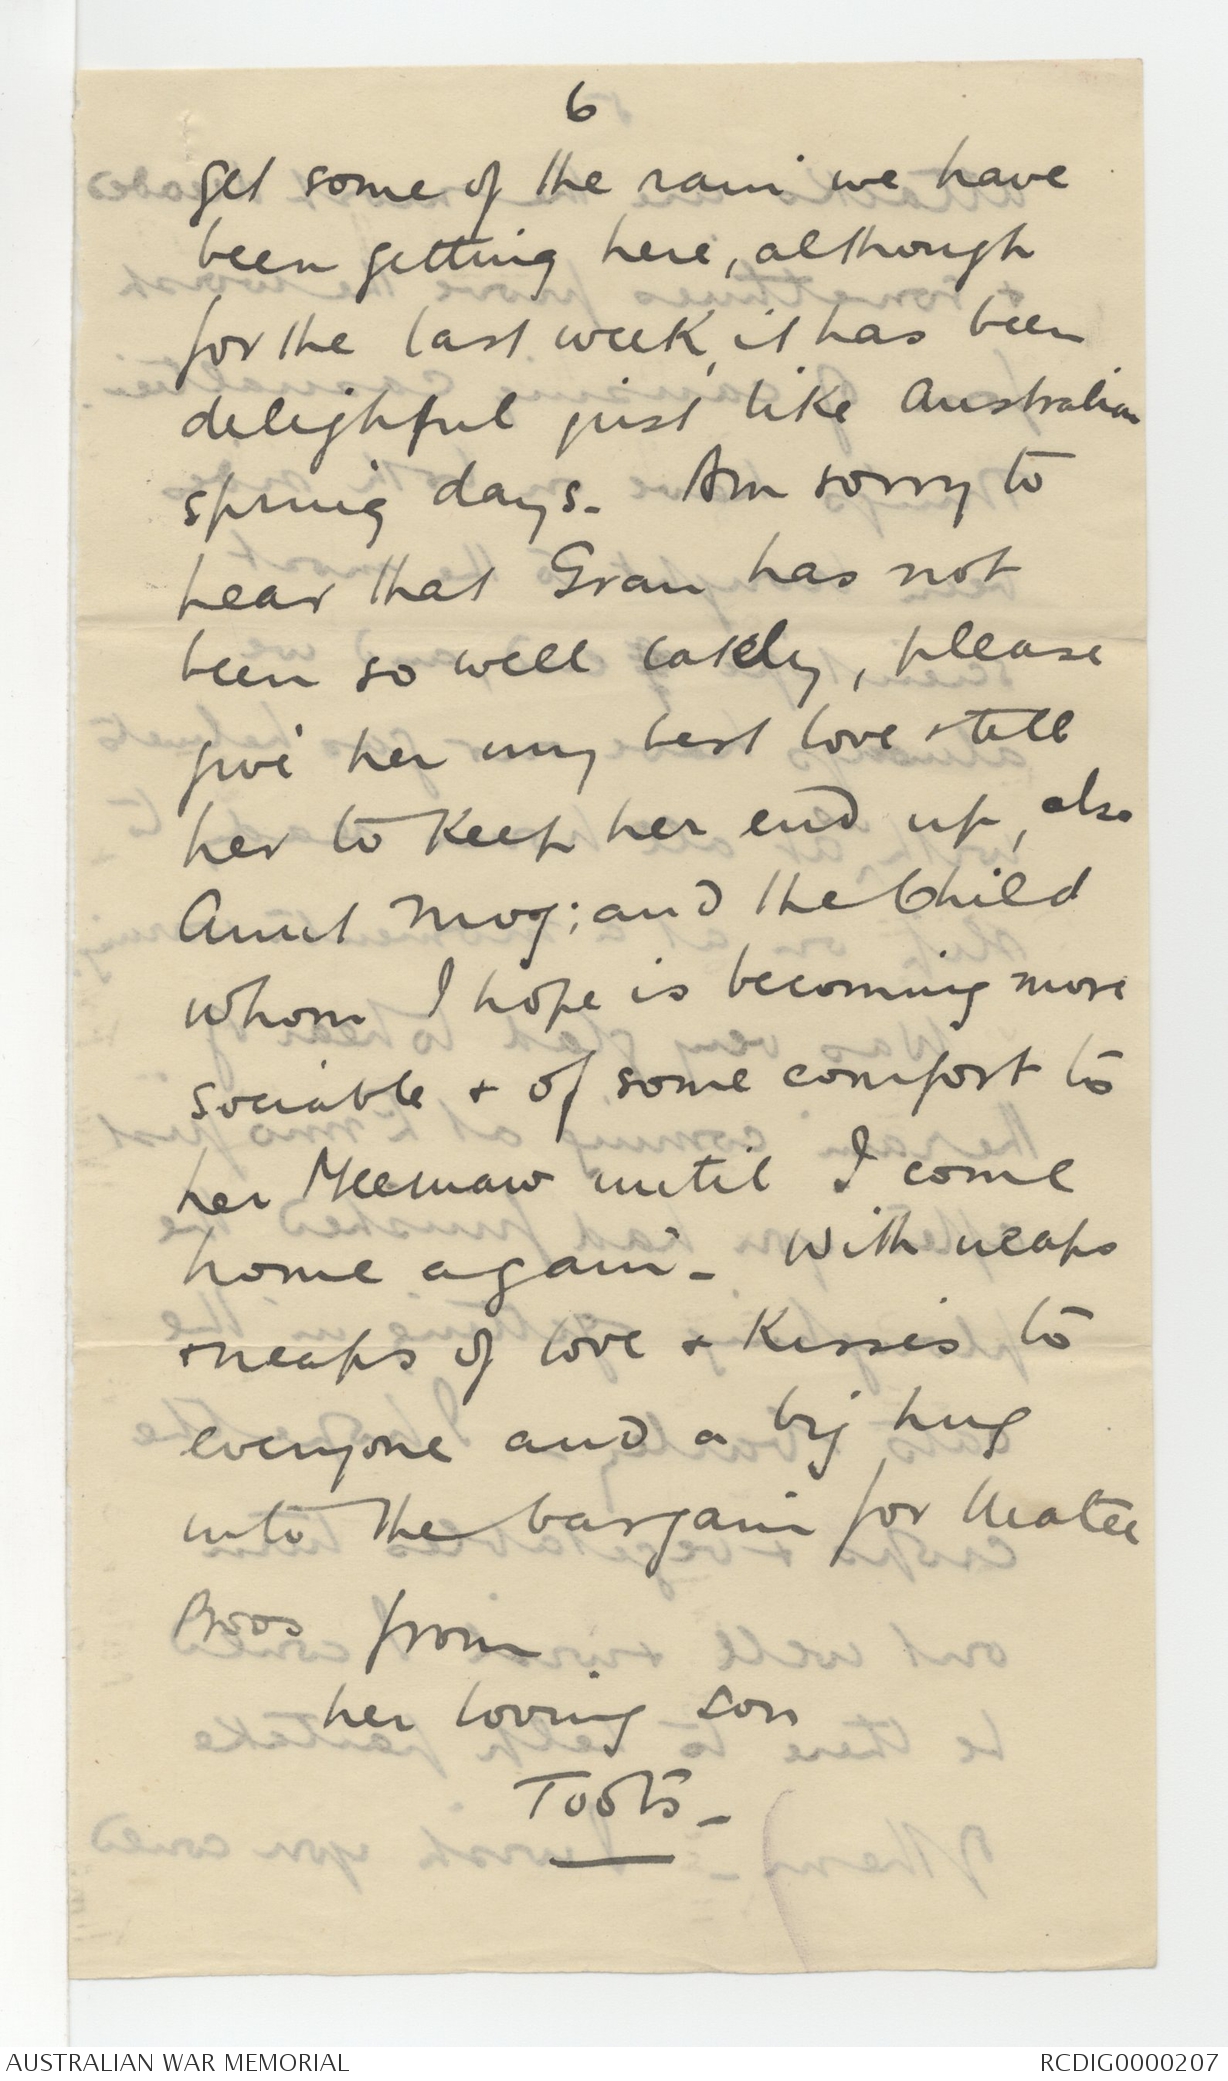 6
get some of the rain we have
been getting here, although
for the last week, it has been
delightful just like Australian
spring days. Am sorry to
hear that Gran has not
been so well lately, please
give her my best love & tell
her to keep her end up, also
Aunt Mog; and the Child
whom I hope is becoming more
sociable & of some comfort to
her Meemaw until I come
home again. With heaps
& heaps of love & kisses to
everyone and a big hug
into the bargain for Mater
from
her loving son
Toots.
AUSTRALIAN WAR MEMORIAL
RCDIG0000207